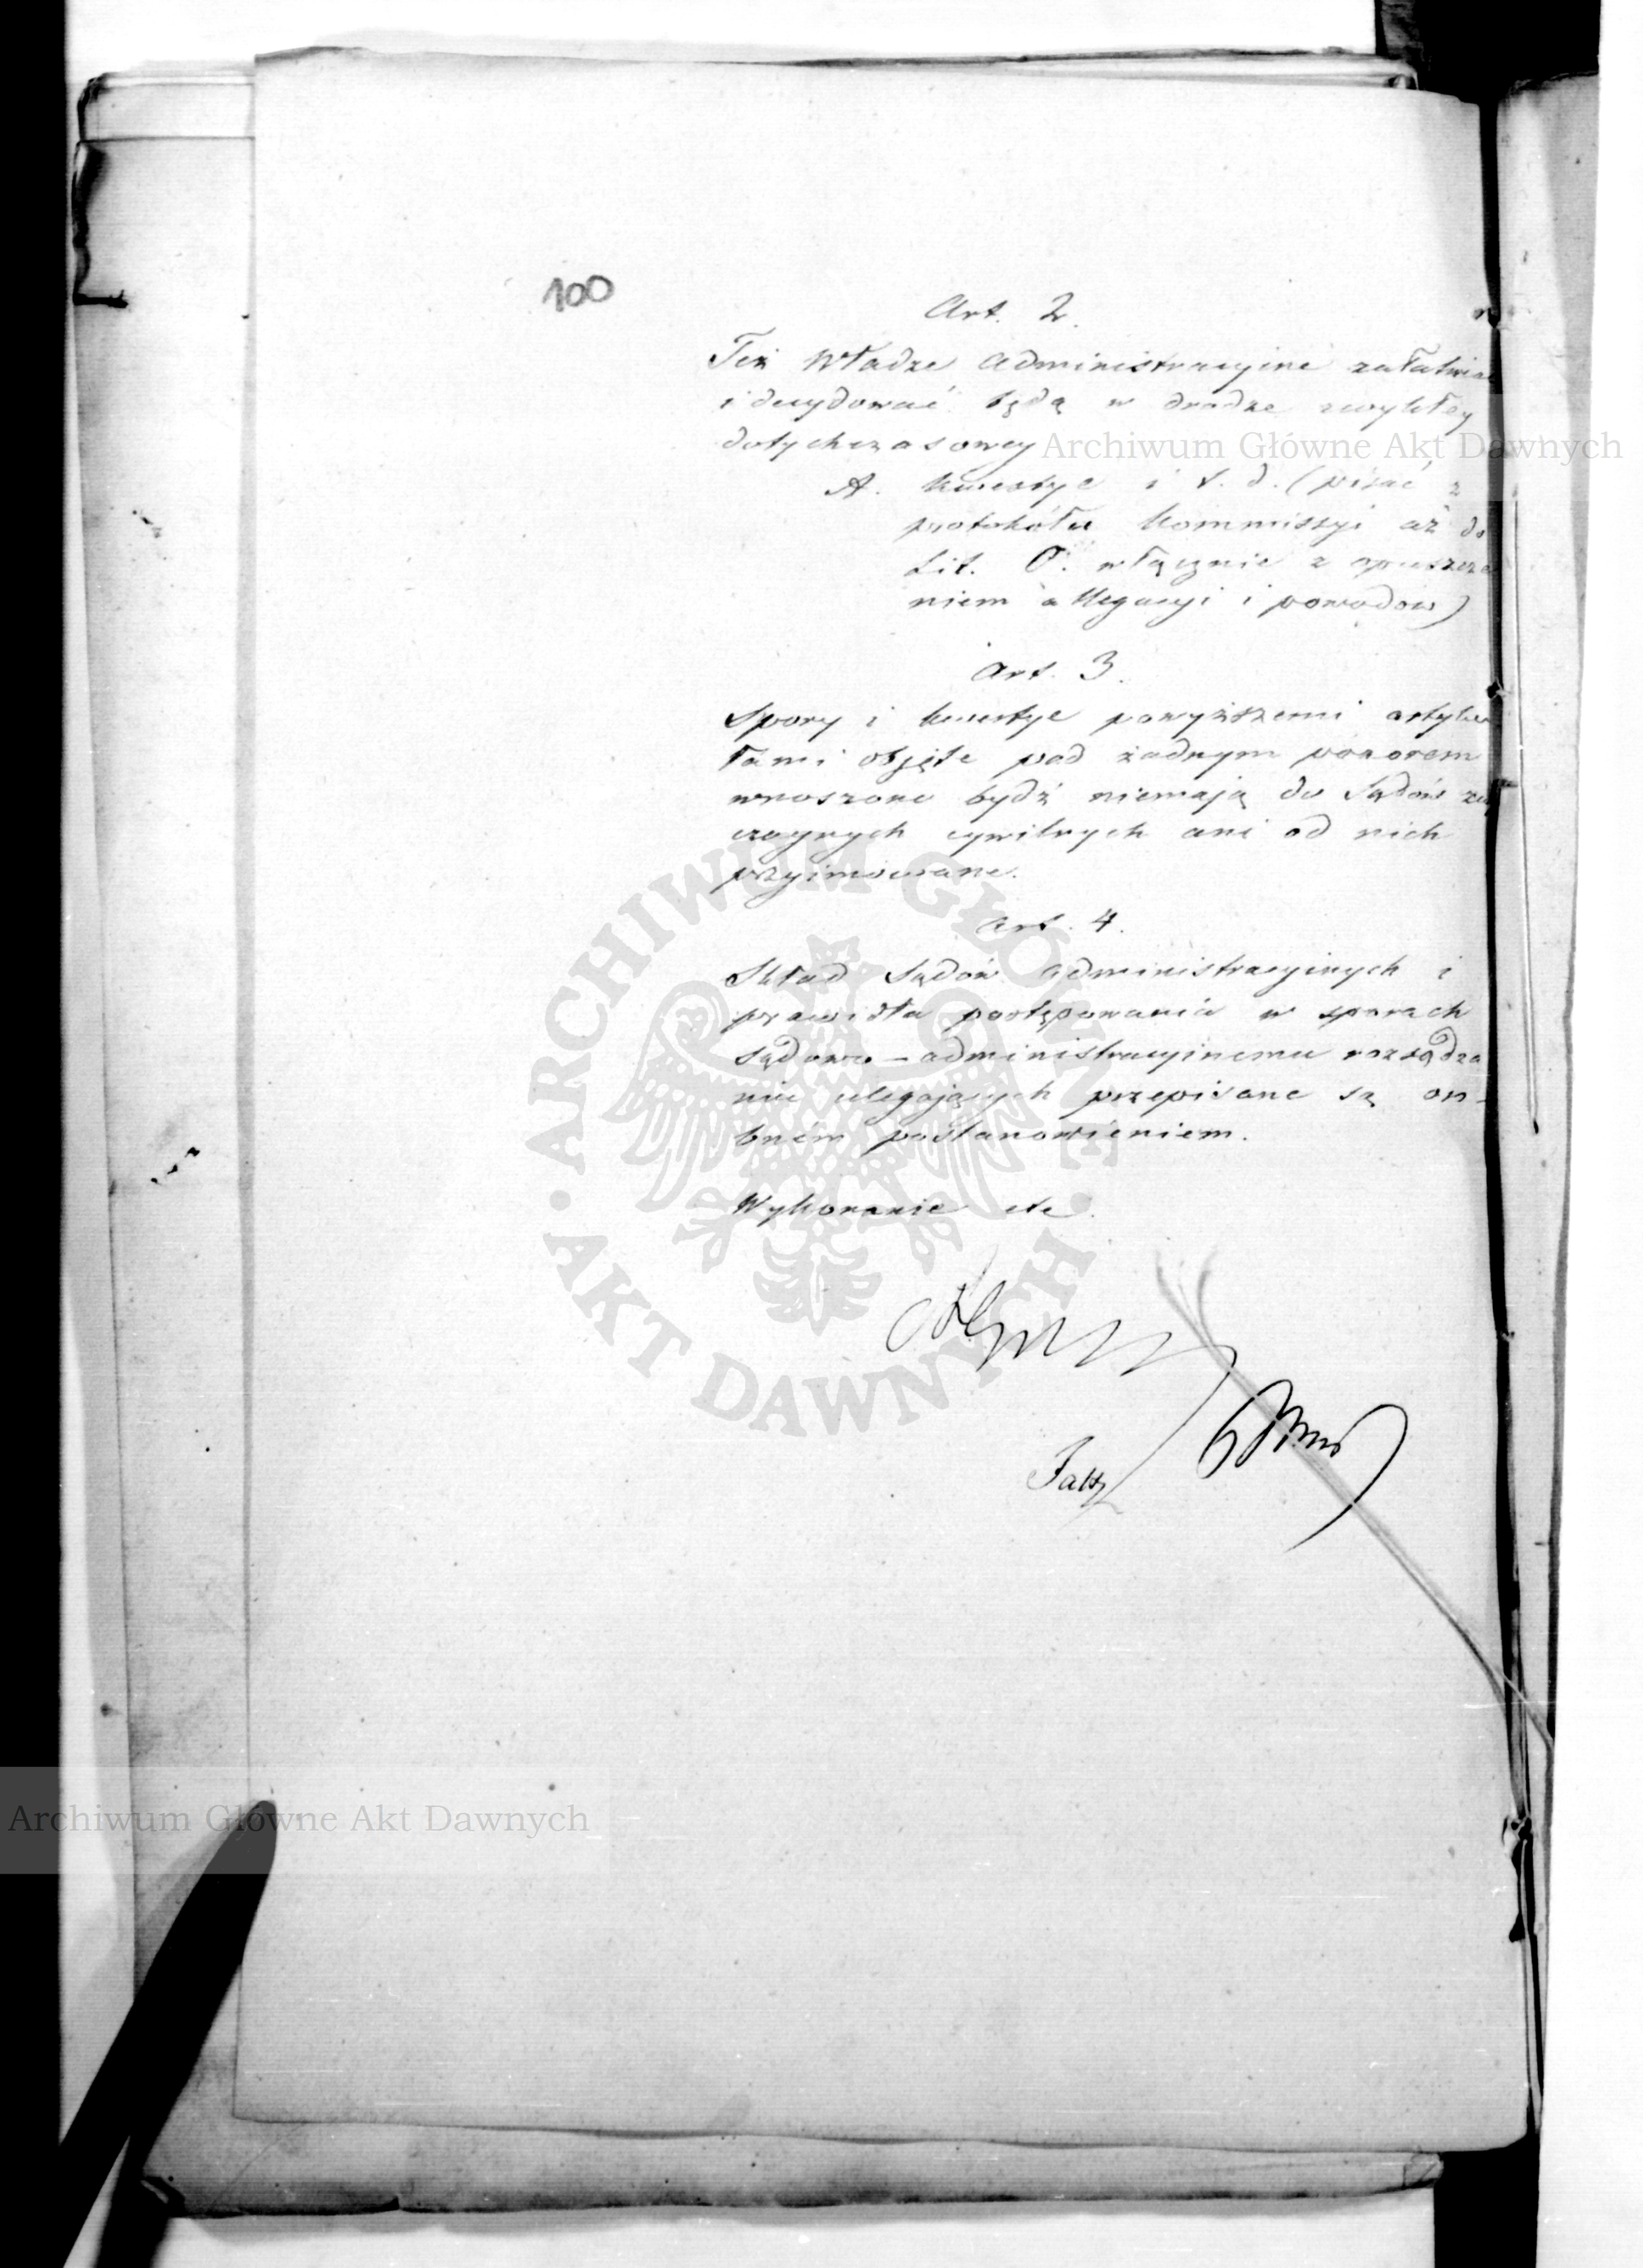 100
Art. 2.
Też Władze Administracyjne załatwiać
i decydować będą w drodze zwykłey
dotychczasowey
A. kwestye i t. d. (pisać z
protokółu Kommissyi aż do
Lit. O. włącznie z opuszcze
niem allegacyi i powodow)
Art. 3.
Spory i kwestye powyższemi artyku
łami objęte pod żadnym pozorem
wnoszone bydź niemają do Sądów zwy
czaynych cywilnych ani od nich
przyimowane.
Art. 4.
Skład Sądów Administracyinych i
prawidła postępowania w sporach
sądowo-administracyinemu rozsądza
niu ulegających przepisane są os-
bném postanowieniem.
Wykonanie etc.
Archiwum Główne Akt Dawnych
ARCHIWUM GŁÓWNE
AKT DAWNYCH
Archiwum Główne Akt Dawnych